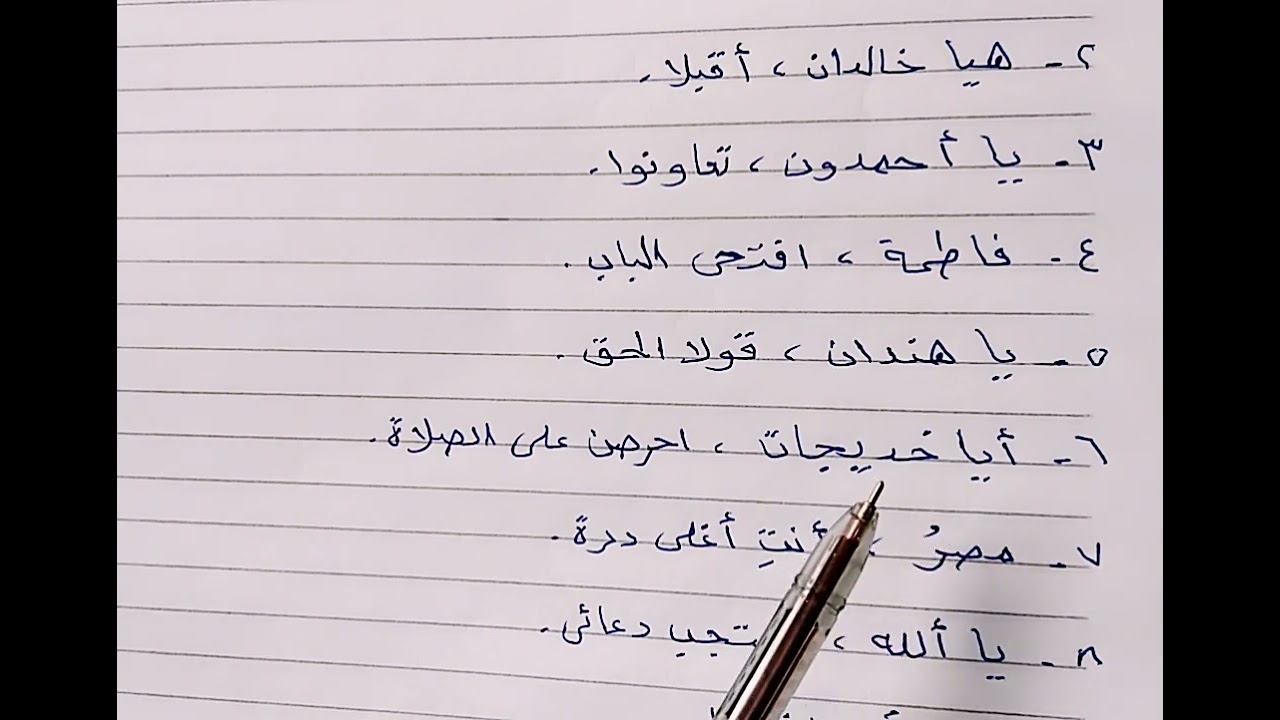 ٢ - هيا خالدان ، أقبلا .
٣ - يا أحمدون ، تعاونوا .
٤ - فاطمة ، افتحى الباب .
٥ - يا هندان ، قولا الحق .
٦ - أيا خديجات ، احرصن على الصلاة .
٧ - مصرُ ، أنتِ أغلى درة .
٨ - يا ألله ، دعائى .